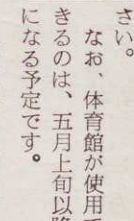 さい。
なお、体育館が使用
きるのは、五月上旬以降
になる予定です。